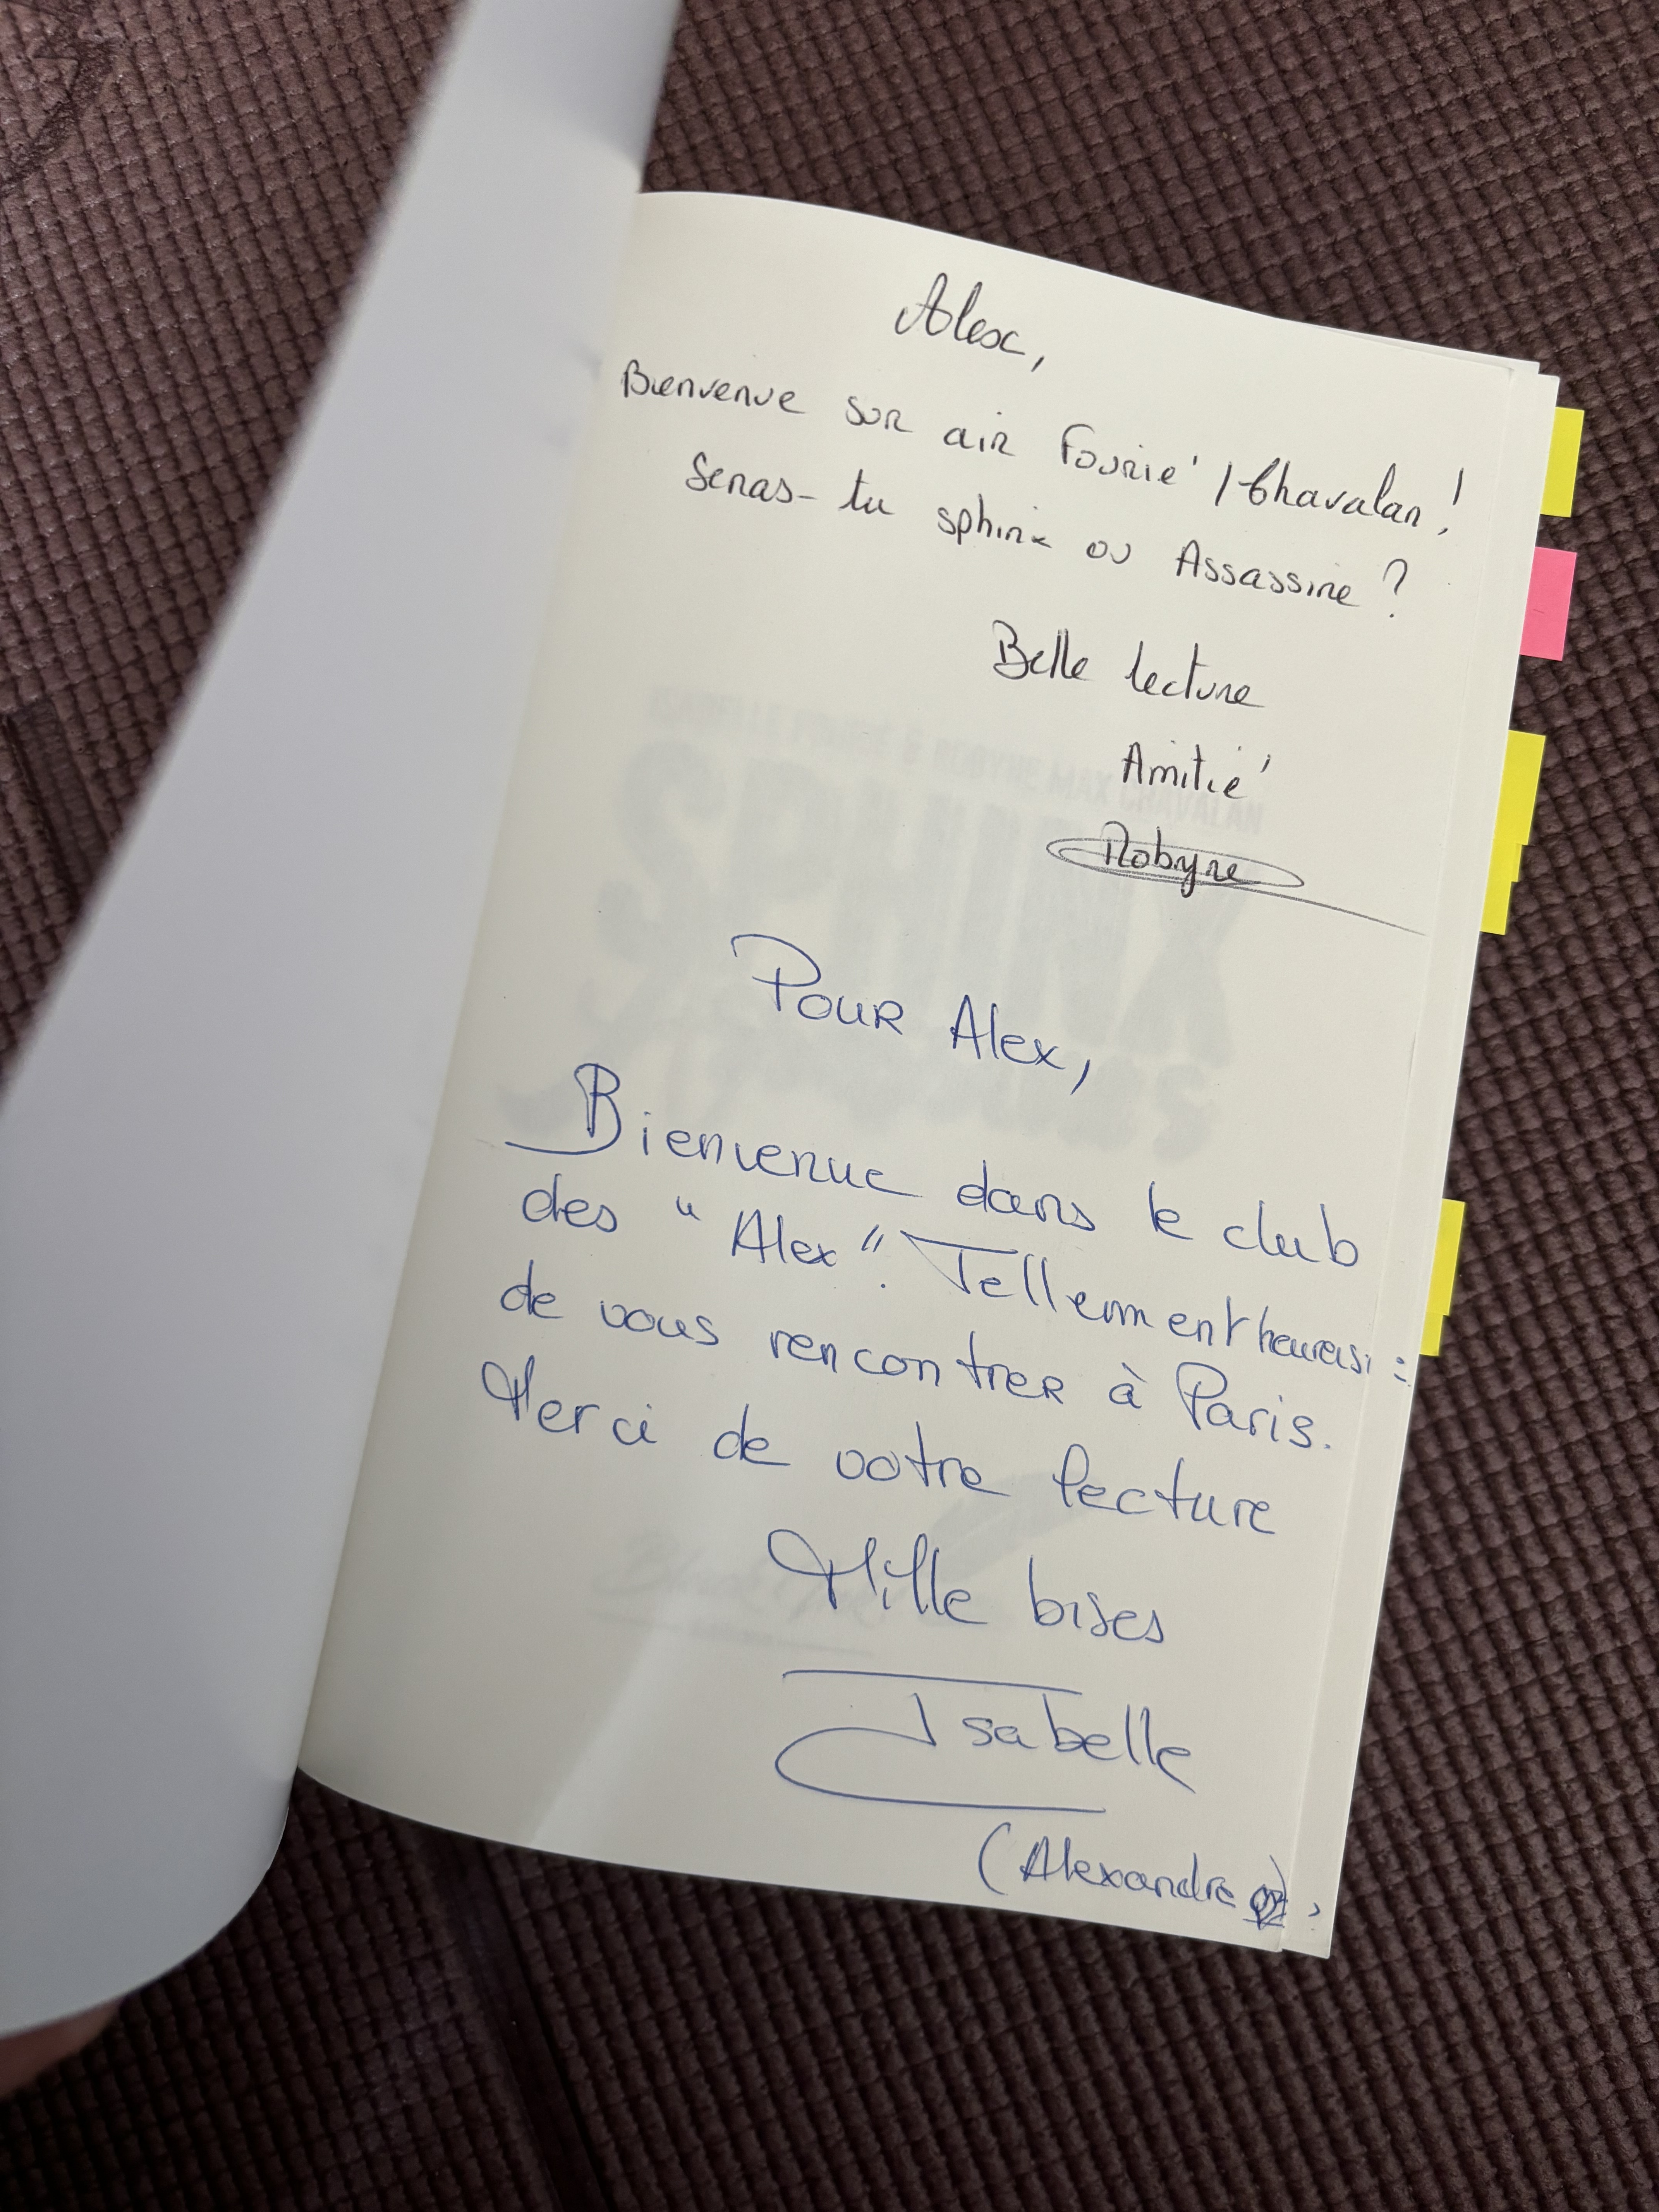 Alex,
Bienvenue sur air Fourié / Chavalan !
Seras-tu sphinx ou Assassine ?
Belle lecture
Amitié
Robyne
Pour Alex,
Bienvenue dans le club
des "Alex". Tellement
de vous rencontrer à Paris.
Merci de votre lecture
Mille bises
Isabelle
(Alexandre